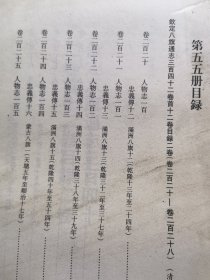 第五五册目録
欽定八旗通志三百四十二卷首十二卷目録二卷(卷二百二十—卷二百二十八)(清
卷二百二十 人物志一百
忠義傳十一 滿洲八旗十二(乾隆十三年至二十四年)
卷二百二十一 人物志一百一
忠義傳十二 滿洲八旗十三(乾隆三十一年至三十七年)
卷二百二十二 人物志一百二
忠義傳十三 滿洲八旗十四(乾隆三十八年至三十九年)
忠義傳十四 滿洲八旗十五(乾隆四十年至五十四年)
人物志一百四
忠義傳十五
卷二百二十五 人物志一百五
忠義傳十六 蒙古八旗一(天聰五年至順治十七年)